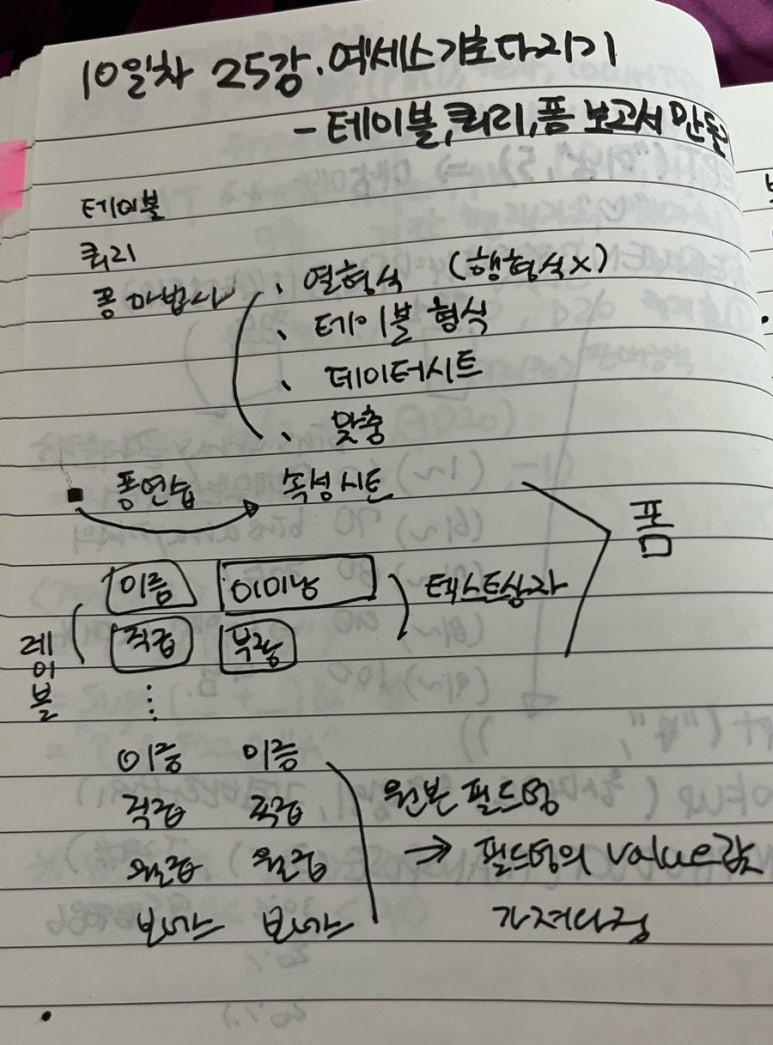 10일차 25강. 엑세스기초다지기
- 테이블, 쿼리, 폼 보고서 만들기
테이블
쿼리
폼 마법사
· 열형식 (행형식×)
· 테이블 형식
· 데이터시트
· 맞춤
폼연습 → 속성시트
폼
이름 이미남
텍스트상자
직급 부장
레이블
⋮
이름 이름
직급 직급
월급 월급
보너스 보너스
원본 필드명
⇒ 필드명의 value값
가져다줌